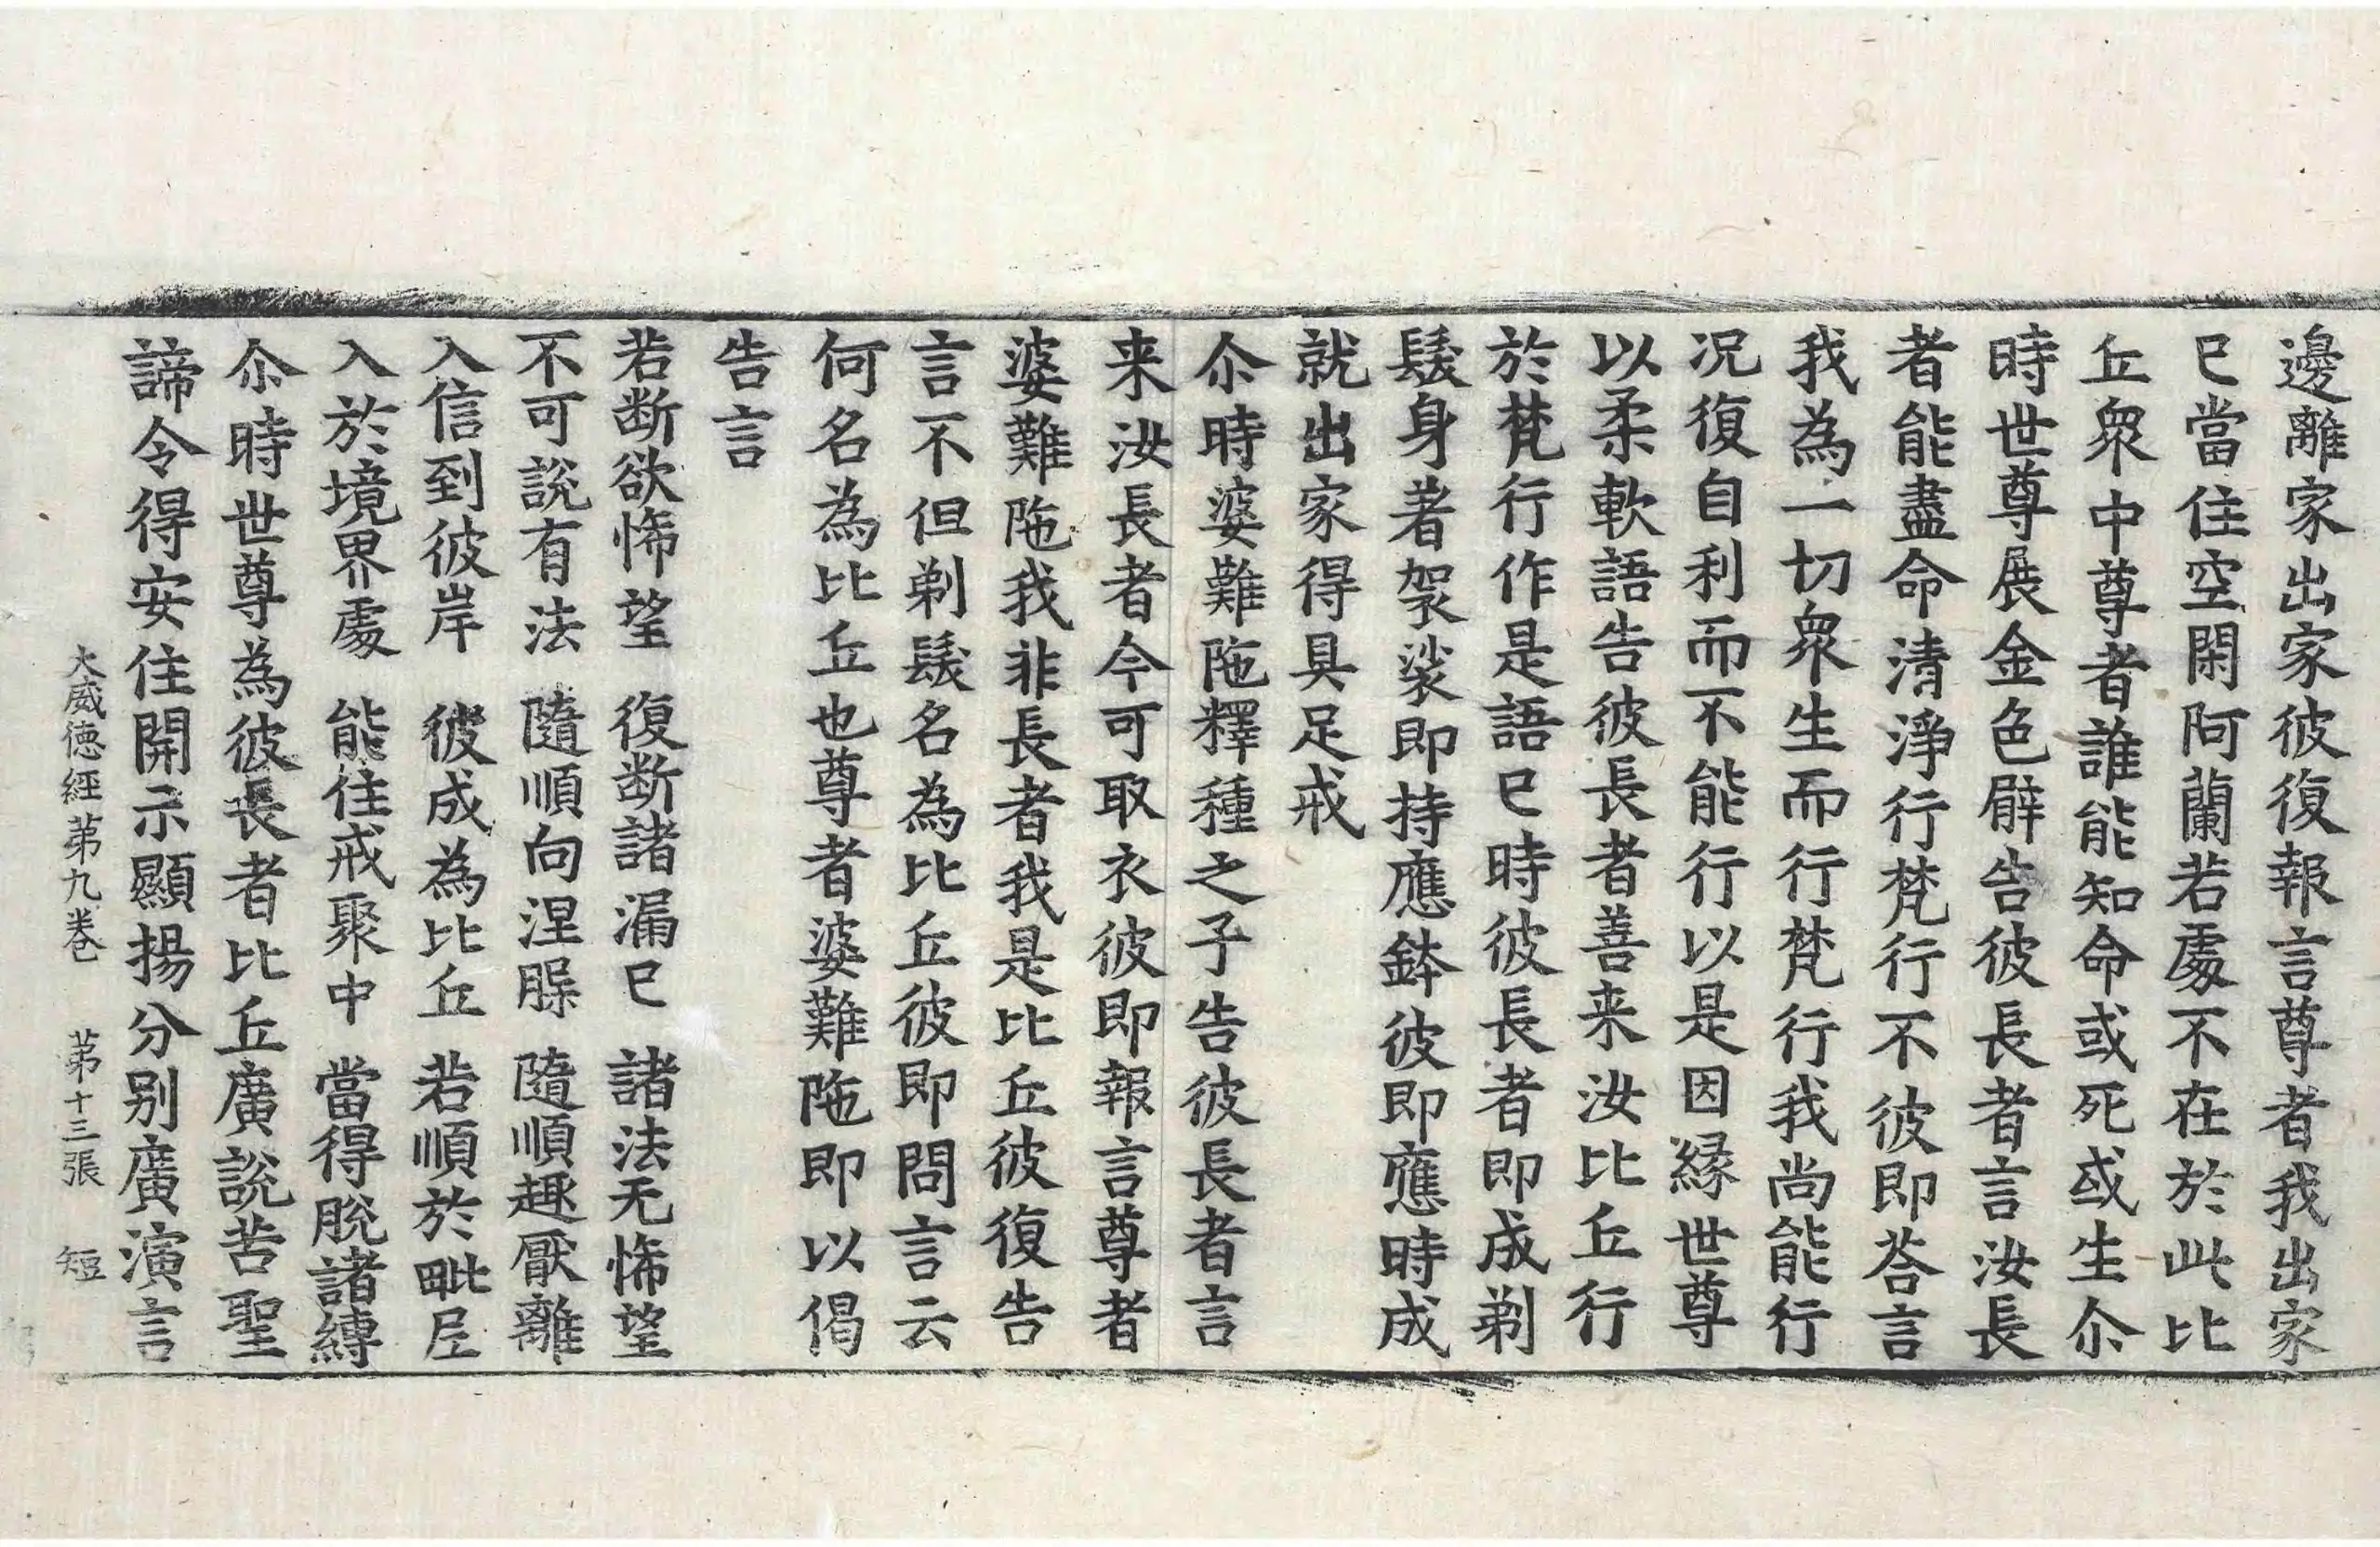 邊離家出家彼復報言尊者我出家
已當住空閑阿蘭若處不在於此比
丘衆中尊者誰能知命或死或生尒
時世尊展金色臂告彼長者言汝長
者能盡命清淨行梵行不彼即荅言
我為一切衆生而行梵行我尚能行
况復自利而不能行以是因縁世尊
以柔軟語告彼長者善来汝比丘行
於梵行作是語已時彼長者即成剃
髮身著袈裟即持應鉢彼即應時成
就出家得具足戒
尒時婆難陁釋種之子告彼長者言
来汝長者今可取衣彼即報言尊者
婆難陁我非長者我是比丘彼復告
言不但剃髮名為比丘彼即問言云
何名為比丘也尊者婆難陁即以偈
告言
若断欲悕望　復断諸漏已　諸法无悕望
不可説有法　隨順向涅槃　隨順趣厭離
入信到彼岸　彼成為比丘　若順於毗尼
入於境界處　能住戒聚中　當得脫諸縛
尒時世尊為彼長者比丘廣説苦聖
諦令得安住開示顯揚分别廣演言
大威徳經苐九卷　苐十三張　短